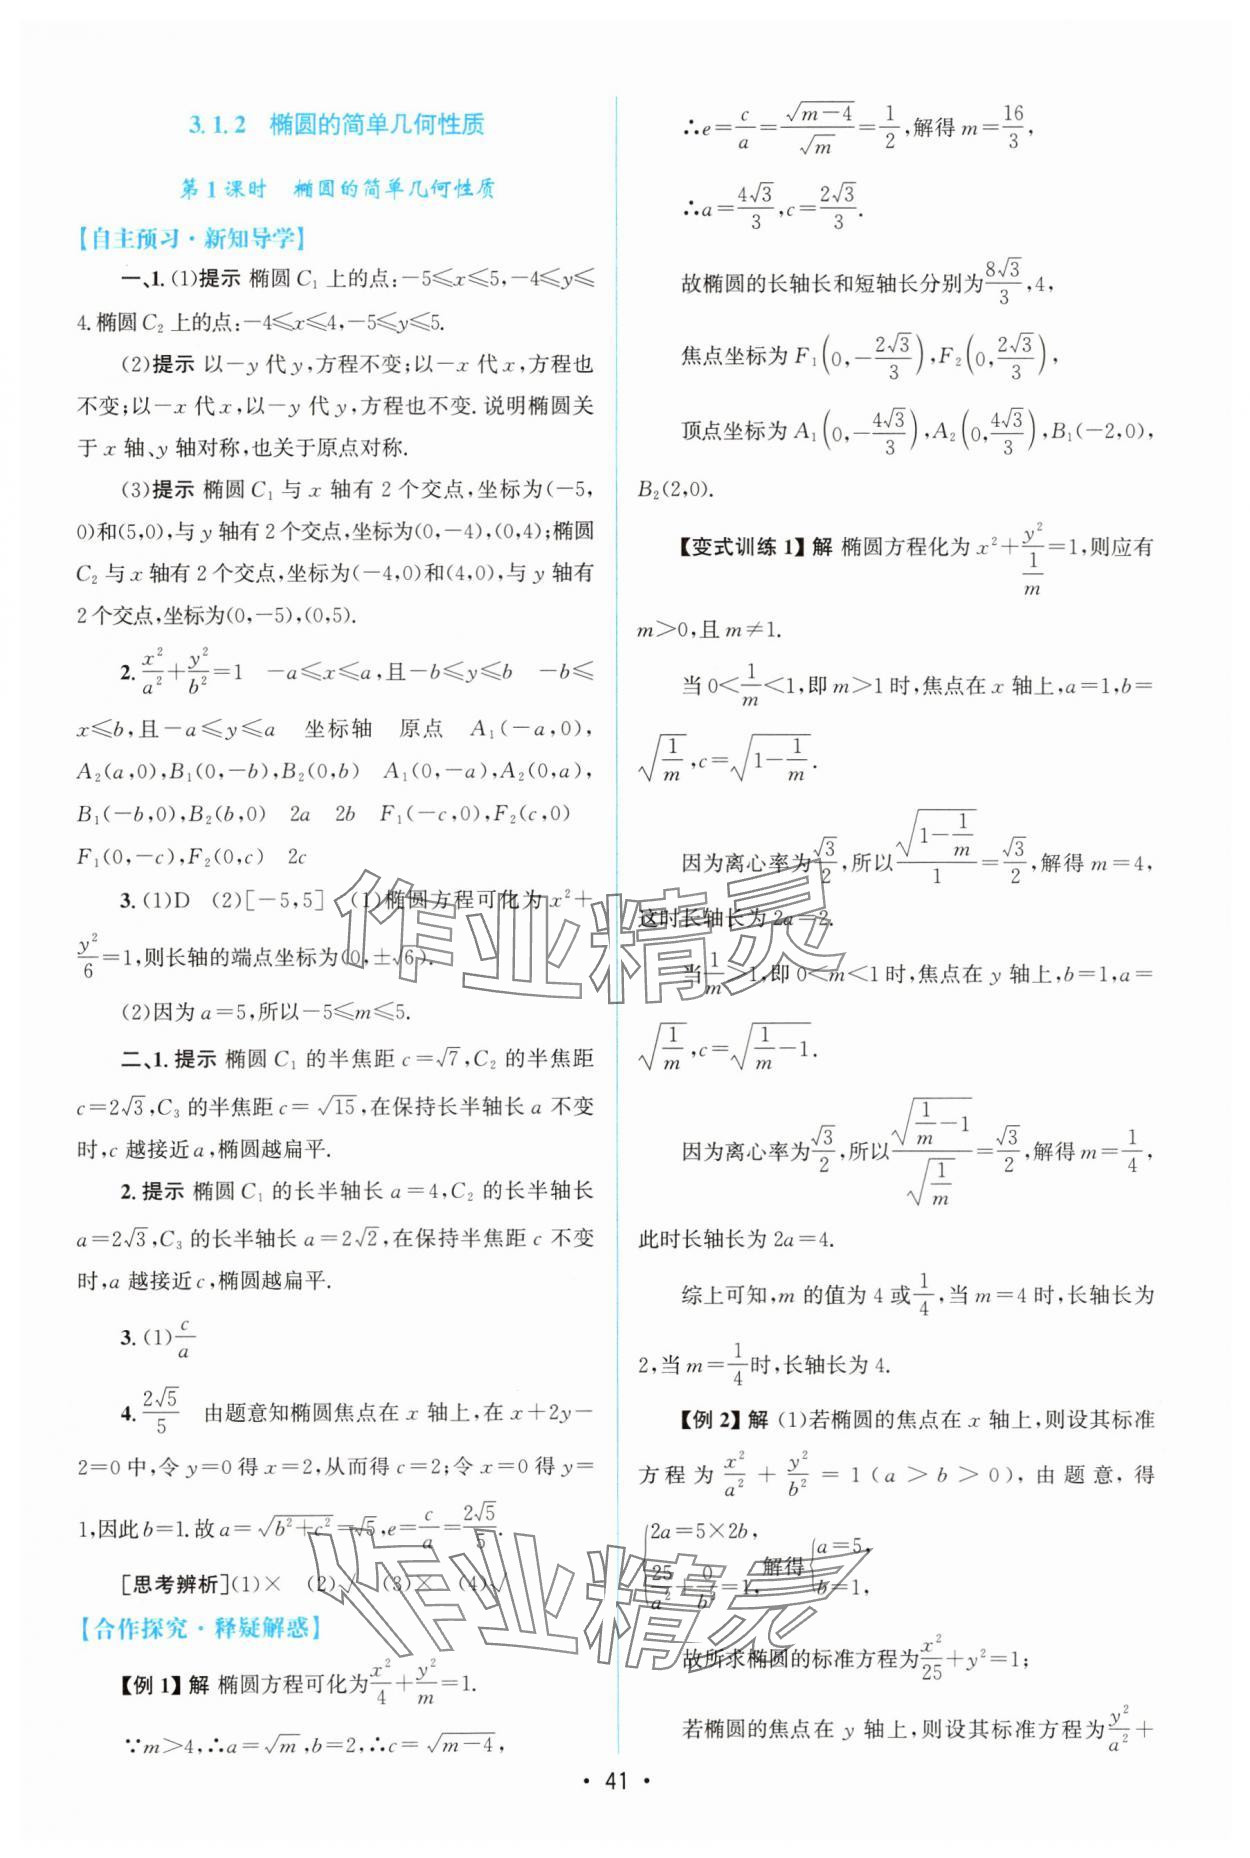 3.1.2 椭圆的简单几何性质
第1课时 椭圆的简单几何性质
【自主预习·新知导学】
一、1.(1)提示 椭圆 C₁ 上的点:−5≤x≤5,−4≤y≤
4.椭圆 C₂ 上的点:−4≤x≤4,−5≤y≤5.
(2)提示 以−y 代 y,方程不变;以−x 代 x,方程也
不变;以−x 代 x,以−y 代 y,方程也不变.说明椭圆关
于 x 轴、y 轴对称,也关于原点对称.
(3)提示 椭圆 C₁ 与 x 轴有 2 个交点,坐标为(−5,
0)和(5,0),与 y 轴有 2 个交点,坐标为(0,−4),(0,4);椭圆
C₂ 与 x 轴有 2 个交点,坐标为(−4,0)和(4,0),与 y 轴有
2 个交点,坐标为(0,−5),(0,5).
2. x²/a²+y²/b²=1 −a≤x≤a,且−b≤y≤b −b≤
x≤b,且−a≤y≤a 坐标轴 原点 A₁(−a,0),
A₂(a,0),B₁(0,−b),B₂(0,b) A₁(0,−a),A₂(0,a),
B₁(−b,0),B₂(b,0) 2a 2b F₁(−c,0),F₂(c,0)
F₁(0,−c),F₂(0,c) 2c
3.(1)D (2)[−5,5] (1)椭圆方程可化为 x²+
y²/6=1,则长轴的端点坐标为(0,±√6).
(2)因为 a=5,所以−5≤m≤5.
二、1.提示 椭圆 C₁ 的半焦距 c=√7,C₂ 的半焦距
c=2√3,C₃ 的半焦距 c=√15,在保持长半轴长 a 不变
时,c 越接近 a,椭圆越扁平.
2.提示 椭圆 C₁ 的长半轴长 a=4,C₂ 的长半轴长
a=2√3,C₃ 的长半轴长 a=2√2,在保持半焦距 c 不变
时,a 越接近 c,椭圆越扁平.
3.(1)c/a
4. 2√5/5 由题意知椭圆焦点在 x 轴上,在 x+2y−
2=0 中,令 y=0 得 x=2,从而得 c=2;令 x=0 得 y=
1,因此 b=1.故 a=√(b²+c²)=√5,e=c/a=2√5/5.
[思考辨析](1)× (2)√ (3)× (4)√
【合作探究·释疑解惑】
【例 1】解 椭圆方程可化为x²/4+y²/m=1.
∵m>4,∴a=√m,b=2,∴c=√(m−4),
∴e=c/a=√(m−4)/√m=1/2,解得 m=16/3,
∴a=4√3/3,c=2√3/3.
故椭圆的长轴长和短轴长分别为8√3/3,4,
焦点坐标为 F₁(0,−2√3/3),F₂(0,2√3/3),
顶点坐标为 A₁(0,−4√3/3),A₂(0,4√3/3),B₁(−2,0),
B₂(2,0).
【变式训练 1】解 椭圆方程化为 x²+y²/(1/m)=1,则应有
m>0,且 m≠1.
当 0<1/m<1,即 m>1 时,焦点在 x 轴上,a=1,b=
√(1/m),c=√(1−1/m).
因为离心率为√3/2,所以√(1−1/m)/1=√3/2,解得 m=4,
这时长轴长为 2a=2.
当1/m>1,即 0<m<1 时,焦点在 y 轴上,b=1,a=
√(1/m),c=√(1/m−1).
因为离心率为√3/2,所以√(1/m−1)/√(1/m)=√3/2,解得 m=1/4,
此时长轴长为 2a=4.
综上可知,m 的值为 4 或1/4,当 m=4 时,长轴长为
2,当 m=1/4时,长轴长为 4.
【例 2】解 (1)若椭圆的焦点在 x 轴上,则设其标准
方程为x²/a²+y²/b²=1(a>b>0),由题意,得
{2a=5×2b, 25/a²+0/b²=1, 解得{a=5, b=1,
故所求椭圆的标准方程为x²/25+y²=1;
若椭圆的焦点在 y 轴上,则设其标准方程为y²/a²+
·41·
作业精灵
作业精灵